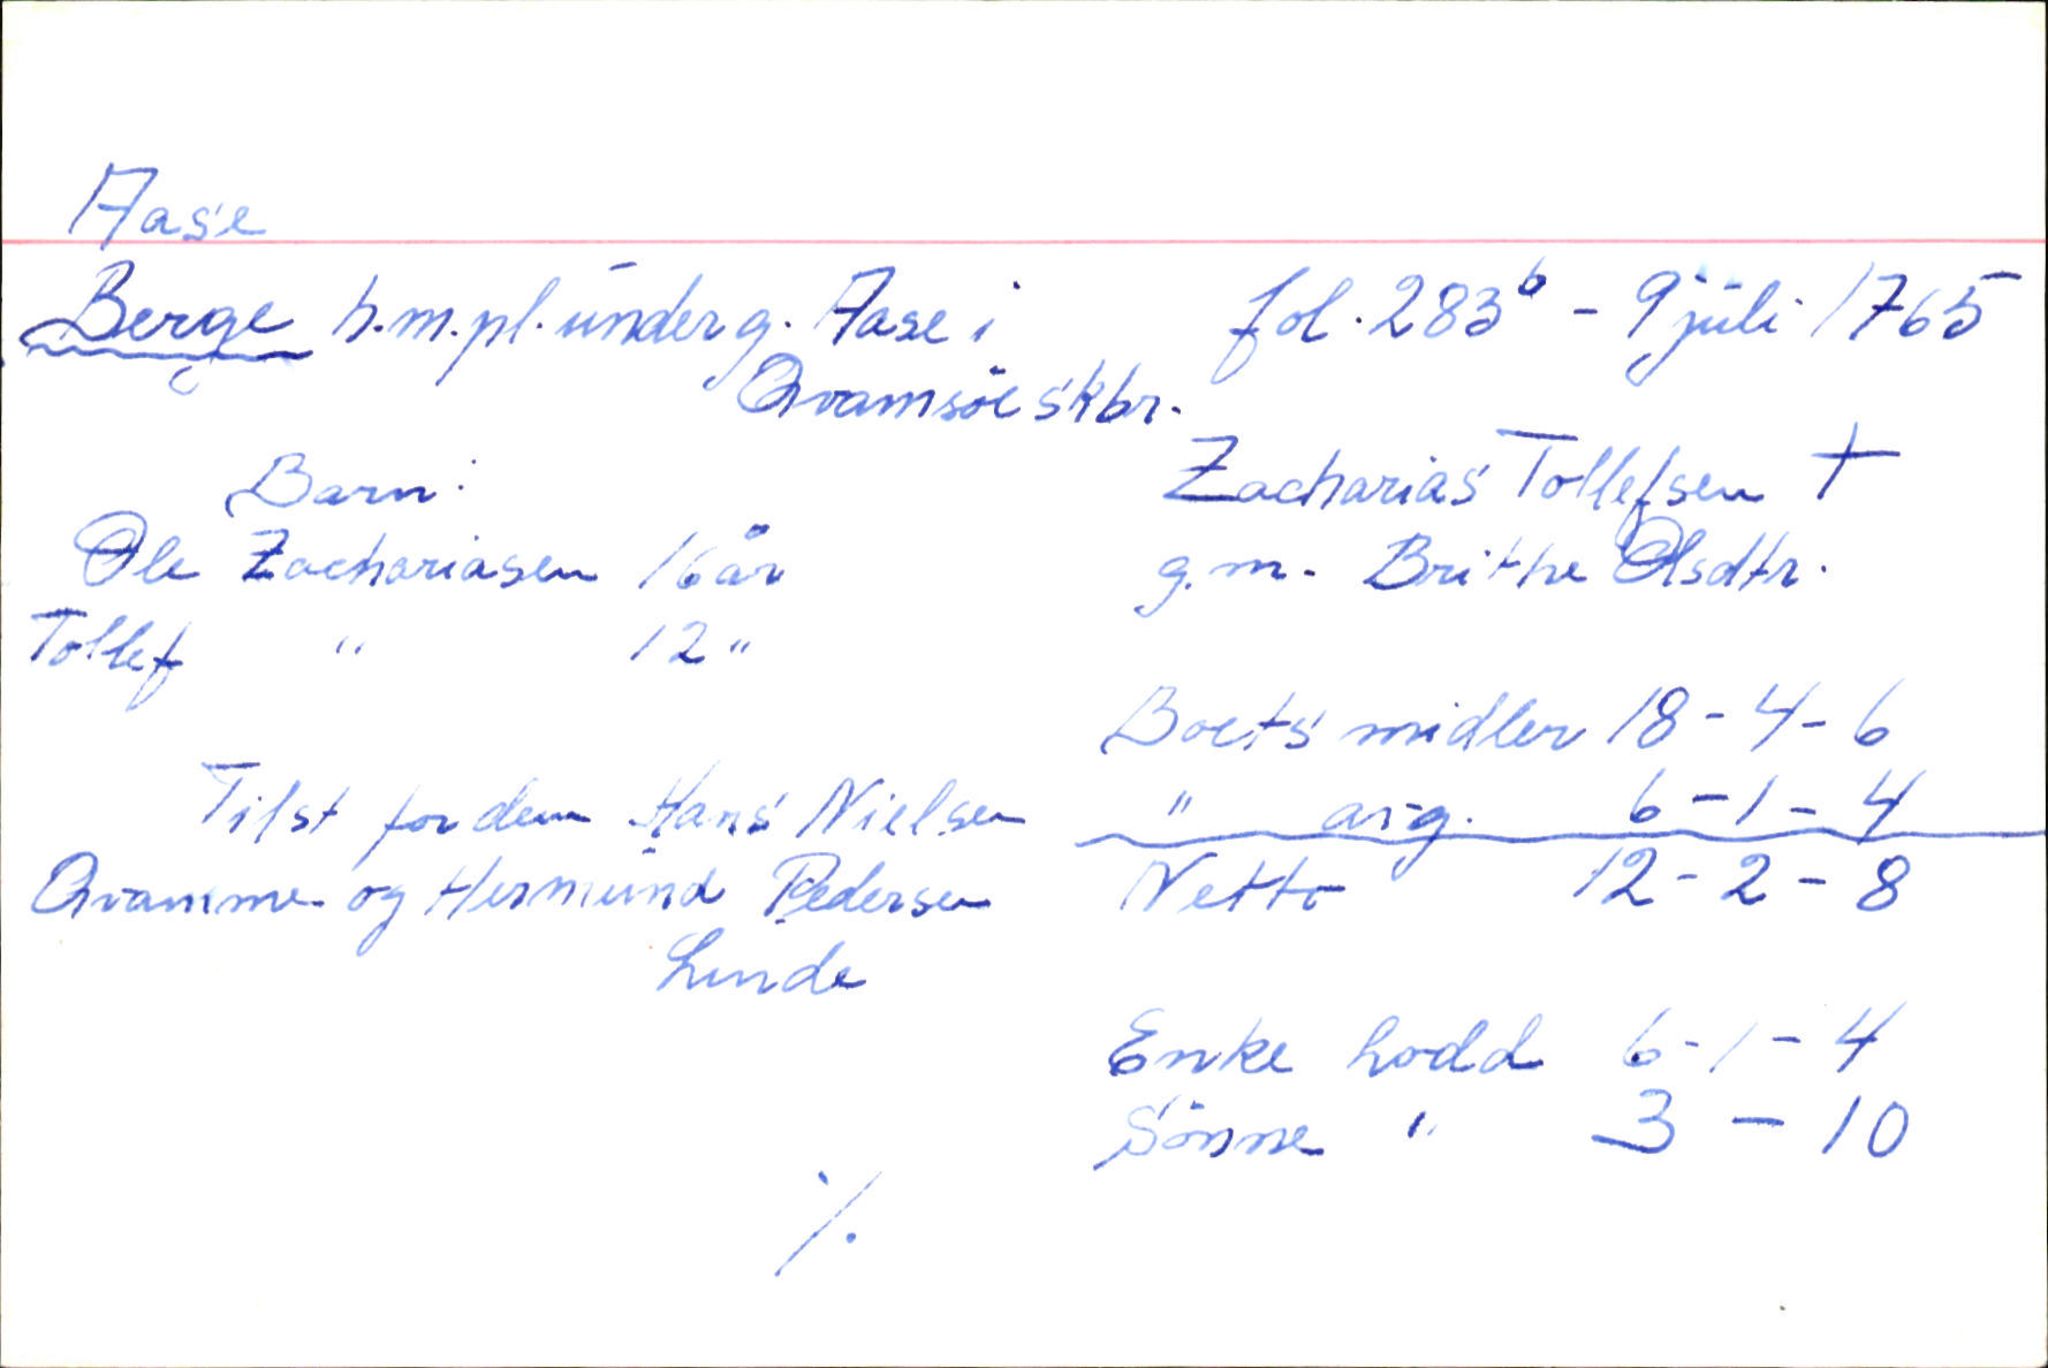 Aase
Berge h.m.pl. under g. Aase i
Qvamsöe skbr.
fol. 283b - 9 juli 1765
Zacharias Tollefsen †
g.m. Brithe Olsdtr.
Barn:
Ole Zachariasen 16 år
Tollef " 12 "
Boets midler 18-4-6
" avg. 6-1-4
Netto 12-2-8
Tilst for dem Hans Nielsen
Qvamme og Hermund Pedersen
Linde
Enke lodd 6-1-4
Sönne " 3 - 10
·/.